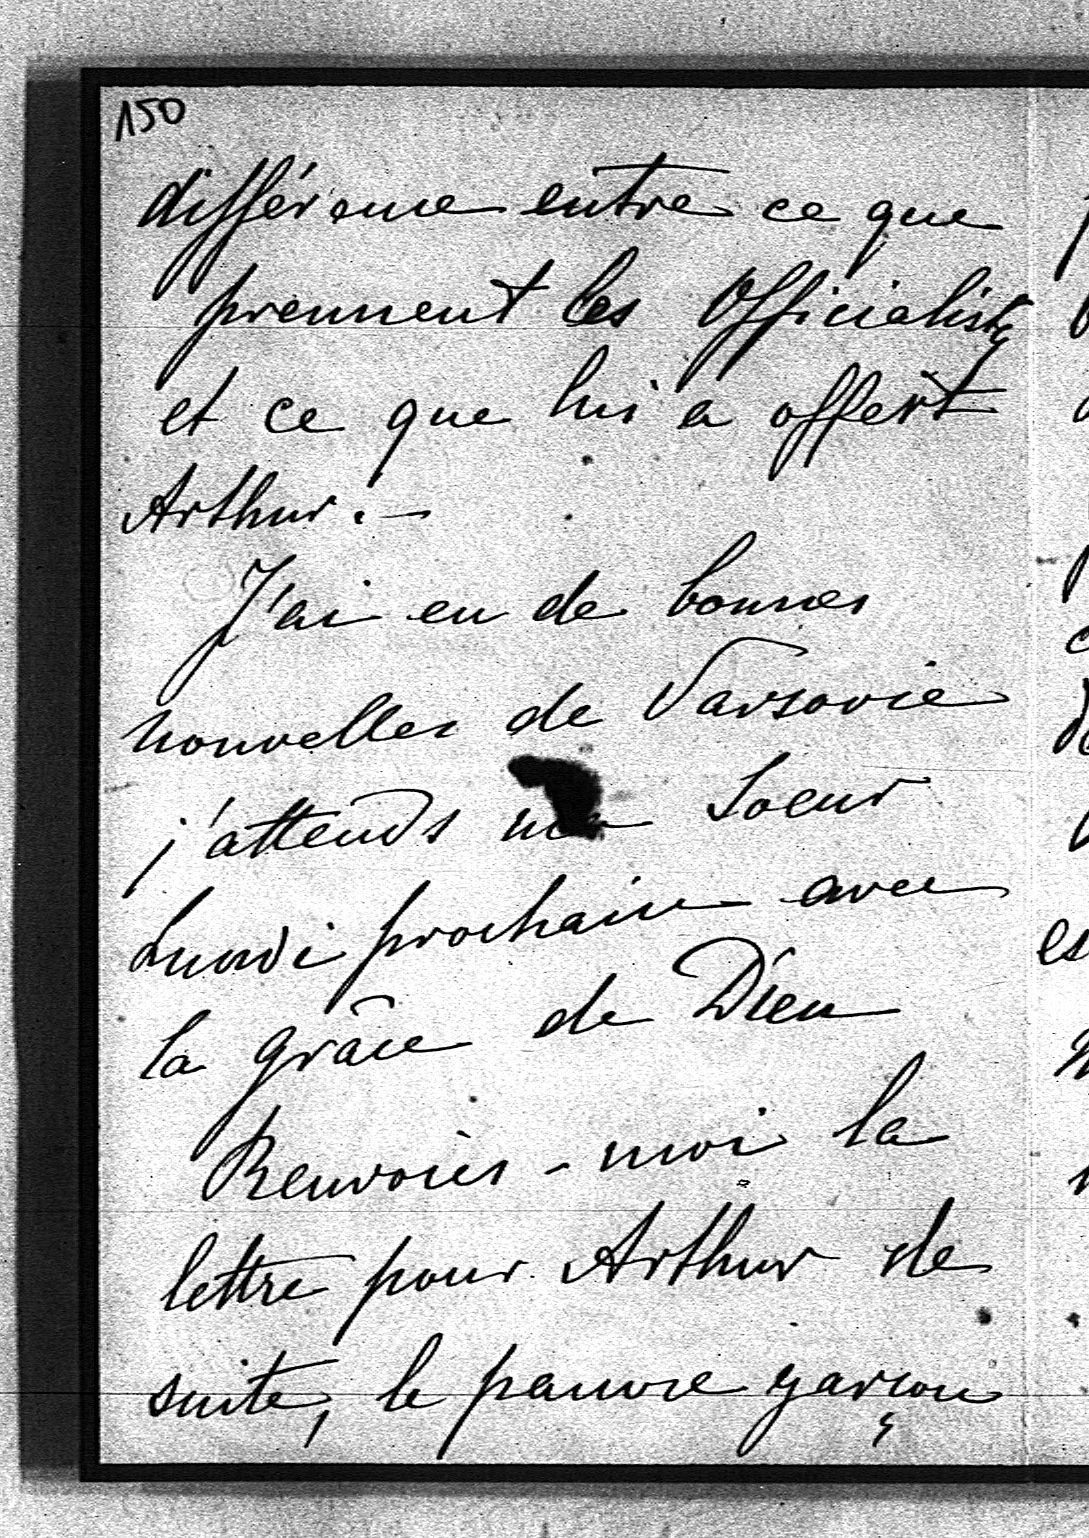 150
différence entre ce que
prennent les Officialists
et ce que lui a offert
Arthur. —
J'ai eu de bonnes
nouvelles de Varsovie
j'attends ma Soeur
Lundi prochain avec
la grâce de Dieu
Renvoies-moi la
lettre pour Arthur de
suite, le pauvre garçon